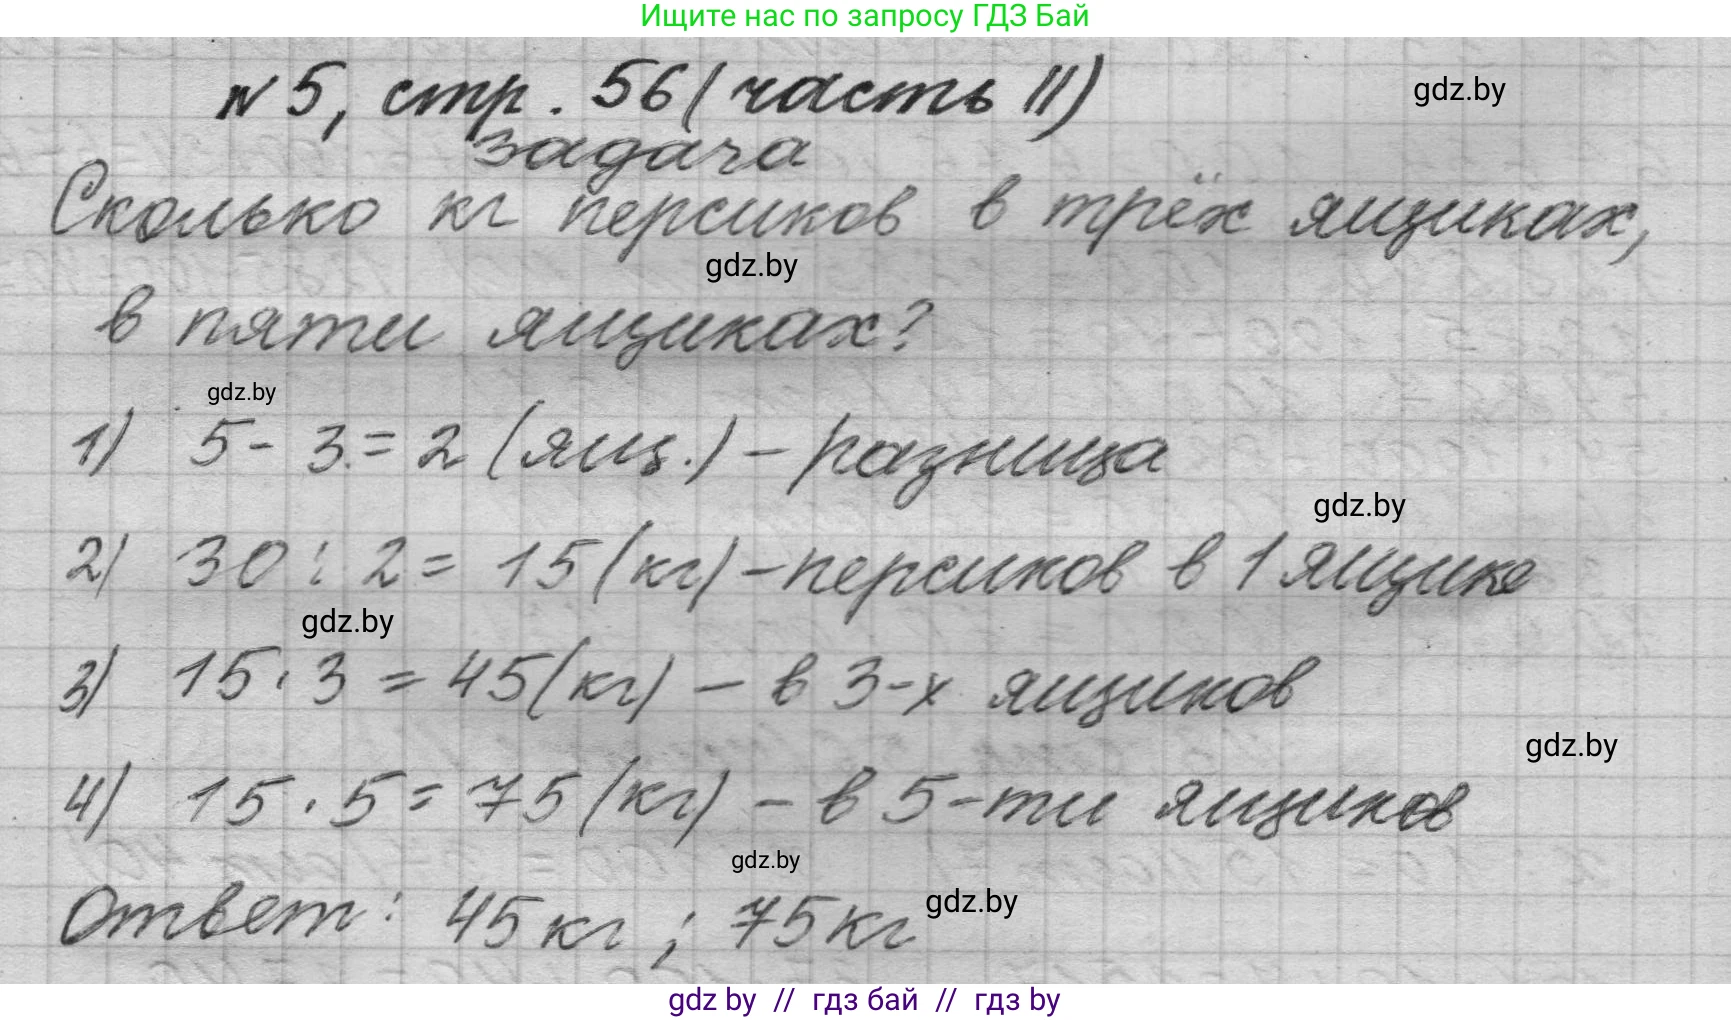 Ищите нас по запросу ГДЗ Бай
№5, стр. 56 (часть II)
gdz.by
Задача
Сколько кг персиков в трёх ящиках,
gdz.by
в пяти ящиках?
gdz.by
1) 5 - 3 = 2 (ящ.) - разница
gdz.by
2) 30 : 2 = 15 (кг) - персиков в 1 ящике
gdz.by
3) 15 · 3 = 45 (кг) - в 3-х ящиков
gdz.by
4) 15 · 5 = 75 (кг) - в 5-ти ящиков
gdz.by
Ответ: 45 кг ; 75 кг
gdz.by
gdz by // гдз бай // гдз by